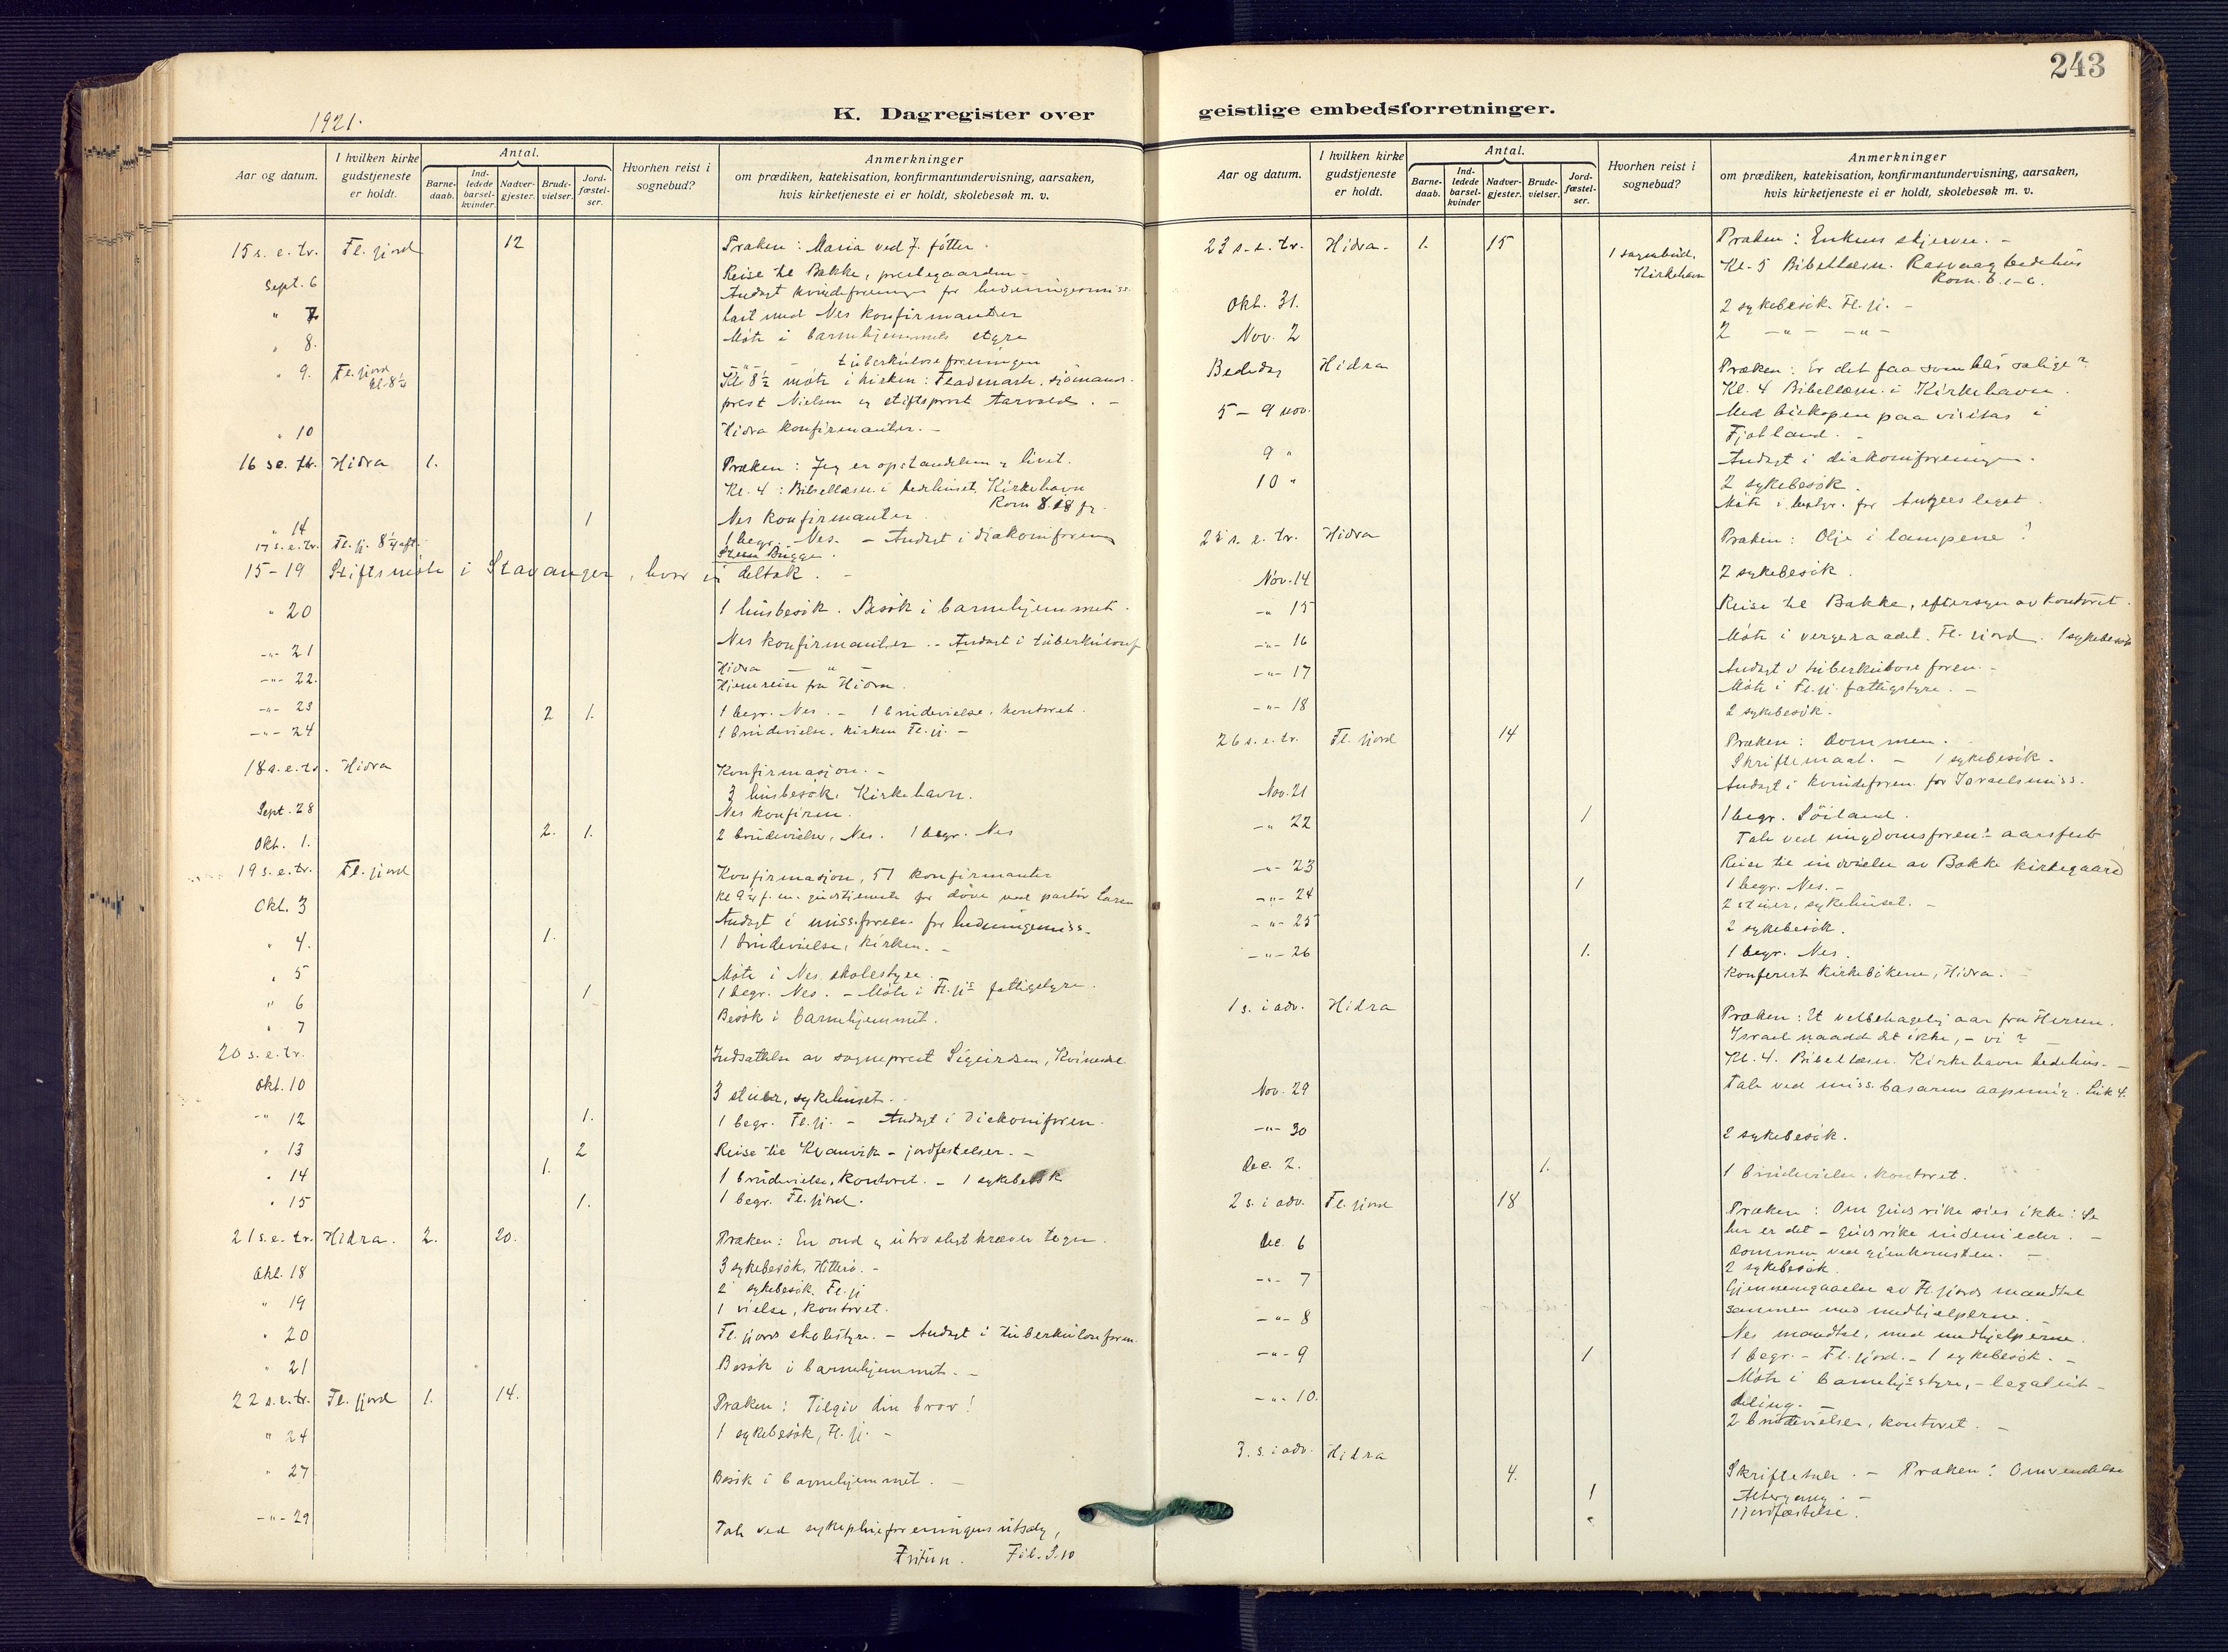 243
1921.
K. Dagregister over geistlige embedsforretninger.
Aar og datum.
I hvilken kirke gudstjeneste er holdt.
Antal.
Barne-daab.
Ind-ledede barsel-kvinder.
Nadver-gjester.
Brude-vielser.
Jord-fæstel-ser.
Hvorhen reist i sognebud?
Anmerkninger
om prædiken, katekisation, konfirmantundervisning, aarsaken,
hvis kirketjeneste ei er holdt, skolebesøk m. v.
15 s. e. tr. Fl. fjord 12 Præken: Maria ved J. føtter.
Sept. 6 Reise til Bakke, prestegaarden -
Andagt kvindeforeningen for hedningemiss.
" 7. med Nes konfirmanter
" 8. Møte i barnehjemmets styre
-"- - tuberkuloseforeningen
" 9. Fl. fjord kl. 8½ Kl 8½ møte i kirken: sjømands-
prest Nielsen og stiftsprost Tarvald. -
" 10 Hidra konfirmanter. -
16 s e. tr. Hidra 1. Præken: Jeg er opstandelsen og livet.
Kl. 4: Bibellæsn. i bedehuset, Kirkehavn
Rom 8.18 fg.
" 14 1 Nes konfirmanter.
17 s. e. tr. Fl. fj. 8¼ aft. 1 begr. Nes. - Andagt i diakoniforen
Bugge.
15-19 Stiftsmøte i Stavanger, hvor jeg deltok. -
" 20 1 husbesøk. Besøk i barnehjemmet.
-"- 21 Nes konfirmanter. - Andagt i tuberkulosef
-"- 22. Hidra -"-
Hjemreise fra Hidra.
-"- 23 2 1. 1 begr. Nes. - 1 brudevielse, kontoret.
-"- 24 1 brudevielse, kirken Fl. fj. -
18 s. e. tr. Hidra Konfirmasjon. -
3 husbesøk, Kirkehavn.
Sept. 28 Nes konfirm.
Okt. 1. 2. 1. 2 brudevielser, Nes. 1 begr. Nes
19 s. e. tr. Fl. fjord Konfirmasjon, 51 konfirmanter
f. m. gudstjeneste for døve ved pastor
Okt. 3 Andagt i miss.foren. for hedningemiss.
" 4. 1. 1 brudevielse, kirken. -
" 5 Møte i Nes skolestyre.
" 6 1 1 begr. Nes. - Møte i Fl. fj.s fattigstyre.
" 7 Besøk i barnehjemmet.
20 s. e. tr. Indsættelse av sogneprest Sigurdsen, Kvinesdal
Okt. 10 3 stuer, sykehuset. -
-"- 12 1. 1 begr. Fl. fj. - Andagt i diakoniforen.
" 13 2 Reise til Kvanvik - jordfestelser. -
" 14 1. 1 brudevielse, kontoret. - 1 sykebesøk
" 15 1. 1 begr. Fl. fjord.
21 s. e. tr. Hidra. 2. 20. Præken: En ond og utro slegt kræver tegn.
Okt. 18 3 sykebesøk, Hitterø. -
2 sykebesøk. Fl. fj
" 19 1 vielse, kontoret.
" 20 Fl. fjords skolestyre. - Andagt i tuberkulosforen.
" 21 Besøk i barnehjemmet. -
22 s. e. tr. Fl. fjord 1. 14. Præken: Tilgiv din bror!
" 24 1 sykebesøk, Fl. fj. -
" 27 Besøk i barnehjemmet. -
-"- 29 Tale ved sykepleieforeningens utsalg,
Fritun.
Aar og datum.
I hvilken kirke gudstjeneste er holdt.
Antal.
Barne-daab.
Ind-ledede barsel-kvinder
Nadver-gjester.
Brude-vielser.
Jord-fæstel-ser.
Hvorhen reist i sognebud?
Anmerkninger
om prædiken, katekisation, konfirmantundervisning, aarsaken,
hvis kirketjeneste ei er holdt, skolebesøk m. v.
23 s. e. tr. Hidra. 1. 15 1 sognebud, Kirkehavn Præken: Enkens skjerver. -
Kl. 5 Bibellæsn. Rasvaag bedehus
Rom. 6. 1-6.
Okt. 31. 2 sykebesøk. Fl. fj. -
Nov. 2 2 -"- -"-
Bededag Hidra Præken: Er det faa som blir salige?
Kl. 4 Bibellæsn. i Kirkehavn.
5-9 nov. Med biskopen paa visitas i
Fjotland. -
9 " Andagt i diakoniforeningen.
10 " 2 sykebesøk.
Møte i bestyr. for legat.
25 s. e. tr. Hidra Præken: Olje i lampene!
Nov. 14 2 sykebesøk.
-"- 15 Reise til Bakke, eftersyn av kontoret.
-"- 16 Møte i vergeraadet, Fl. fjord. 1 sykebesøk
-"- 17 Andagt i tuberkulose foren. -
Møte i Fl. fj. fattigstyre. -
-"- 18 2 sykebesøk.
26 s. e. tr. Fl. fjord 14 Præken: Dommen.
Skriftemaal. - 1 sykebesøk.
Nov. 21 Andagt i kvindeforen. for Israelsmiss.
-"- 22 1 1 begr. Søiland.
Tale ved ungdomsforen.s aarsfest
-"- 23 Reise til indvielse av Bakke kirkegaard
-"- 24 1. 1 begr. Nes. -
2 stuer, sykehuset. -
-"- 25 2 sykebesøk.
-"- 26 1. 1 begr. Nes.
Konferert kirkebøkene, Hidra. -
1 s. i adv. Hidra Præken: Et velbehagelig aar fra Herren.
Israel naadde det ikke, - vi? -
Kl. 4. Bibellæsn. Kirkehavn bedehus. -
Nov. 29 Tale ved miss.basarens aapning. Luk 4.
-"- 30 2 sykebesøk.
Dec. 2. 1. 1 brudevielse, kontoret.
2 s. i adv. Fl. fjord 18 Præken: Om Guds rike sies ikke: Se
her er det - Guds rike indeni eder. -
Dommen ved gjenkomsten. -
Dec. 6 2 sykebesøk.
-"- 7 Gjennemgaaelse av Fl. fjords mandtal
sammen med medhjelperne. -
-"- 8 Nes mandtal, med medhjelperne.
-"- 9 1 1 begr. - Fl. fjord. - 1 sykebesøk. -
Møte i barnehj.s styre, - legatut-
-"- 10. deling. -
2 brudevielser, kontoret. -
3. s. i adv. Hidra 4. Skriftetale. - Præken: Omvendelse
1 Altergang. -
1 jordfæstelse.